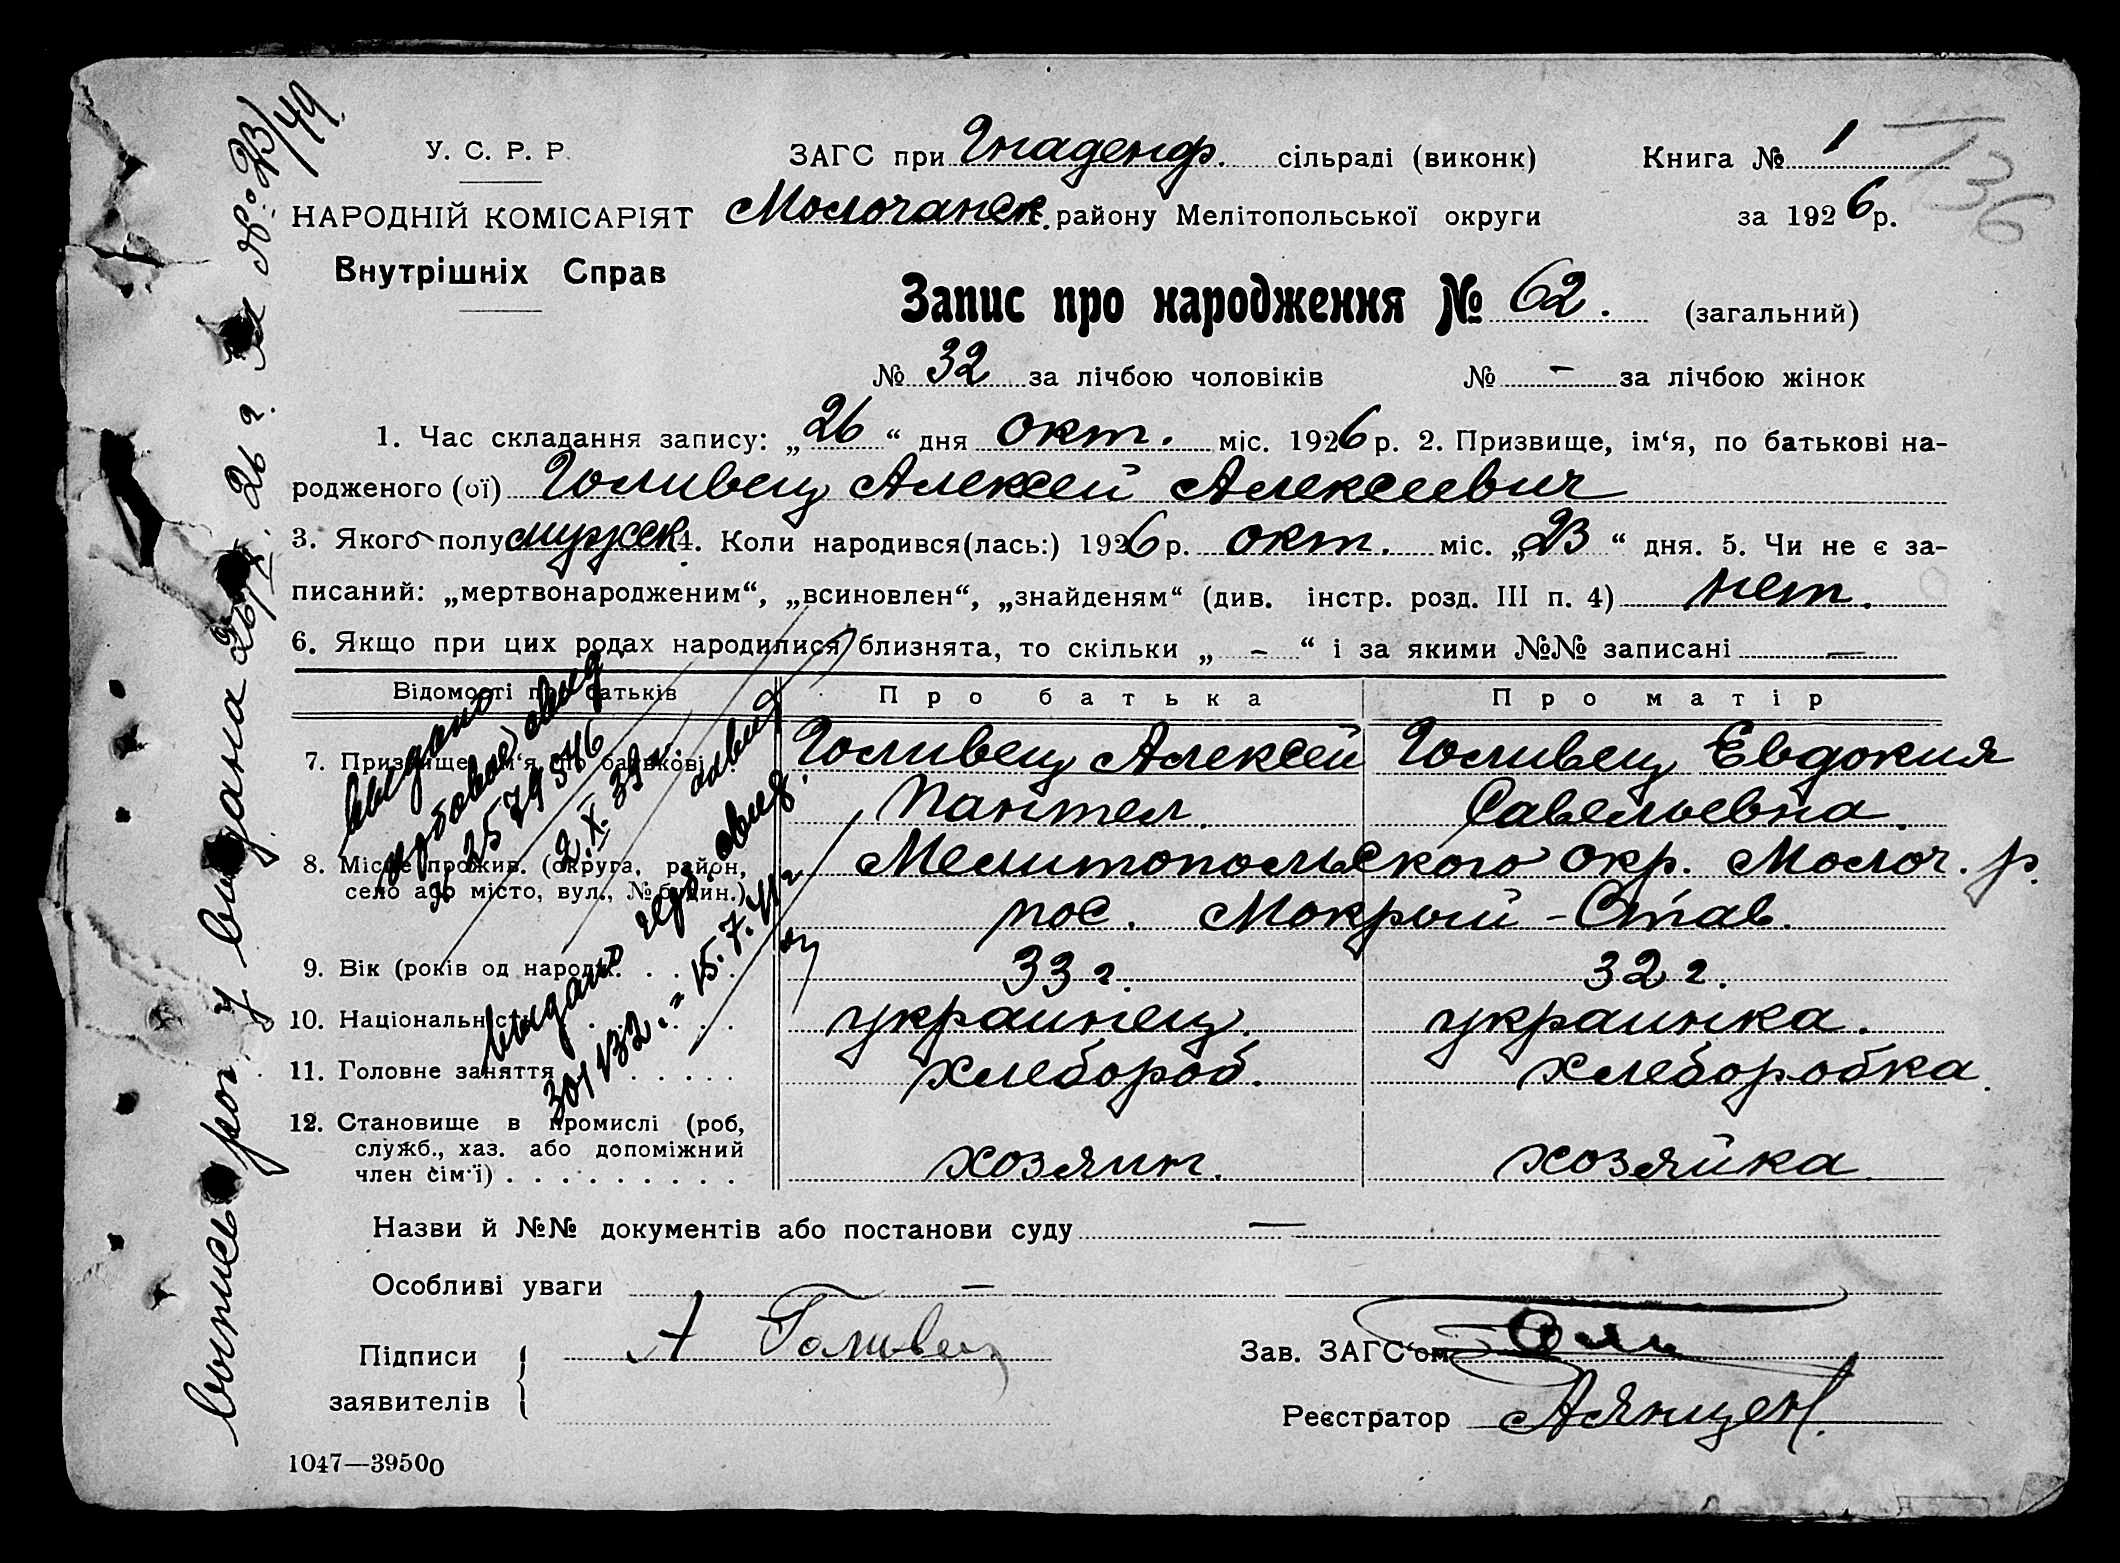 У. С. Р. Р.
НАРОДНІЙ КОМІСАРІЯТ
Внутрішніх Справ
ЗАГС при Гнаденф. сільраді (виконк) Книга № 1
136
Молочанск. району Мелітопольської округи за 1926 р.
Запис про народження № 62. (загальний)
№ 32 за лічбою чоловіків № - за лічбою жінок
1. Час складання запису: „26“ дня окт. міс. 1926 р. 2. Призвище, ім‘я, по батькові на-
родженого (ої) Голивец Алексей Алексеевич
3. Якого полу мужск 4. Коли народився(лась:) 1926 р. окт. міс. „23“ дня. 5. Чи не є за-
писаний: „мертвонародженим“, „всиновлен“, „знайденям“ (див. інстр. розд. III п. 4) нет.
6. Якщо при цих родах народилися близнята, то скільки „ - “ і за якими №№ записані —
Відомості про батьків Про батька Про матір
7. Призвище, ім‘я, по батькові . Голивец Алексей Голивец Евдокия
Пантел. Савельевна.
8. Місце прожив. (округа, район, Мелитопольского окр. Молоч. р.
село або місто, вул., № будин.) пос. Мокрый-Став.
9. Вік (років од народж. 33 г. 32 г.
10. Національність украинец. украинка.
11. Головне заняття хлебороб. хлеборобка.
12. Становище в промислі (роб,
служб., хаз. або допоміжний
член сім‘ї) хозяин. хозяйка
Назви й №№ документів або постанови суду —
Особливі уваги —
Підписи заявителів А Голивец
Зав. ЗАГС‘ом
Реєстратор
1047—39500
выдано
гербовое свид
№ 2579546
2.X.39 г.
выдано герб. свид.
301132.= 15.7.41 г
выпись о рожд. выдана 26/X. 26 г. за № 23/49.